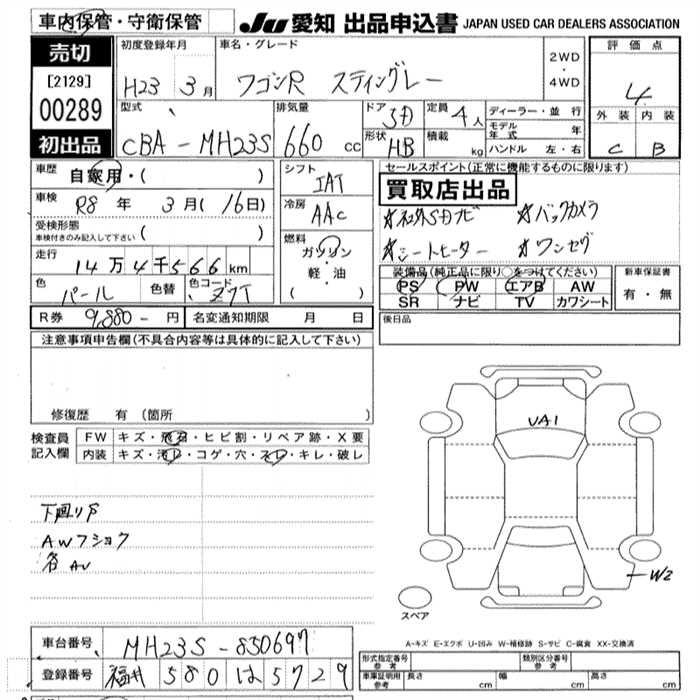 車内保管・守衛保管
JU 愛知 出品申込書 JAPAN USED CAR DEALERS ASSOCIATION
売切
[2129]
00289
初出品
初度登録年月
H23 3月
車名・グレード
ワゴンR スティングレー
2WD
・
4WD
評価点
4
外装 内装
C B
型式
CBA-MH23S
排気量
660 cc
ドア
5D
形状
HB
定員
4人
積載
kg
ディーラー・並行
モデル年式 年
ハンドル 左・右
車歴
自家用・( )
車検
R8 年 3月(16日)
受検形態
車検付きのみ記入して下さい ( )
走行
14万4千566km
色
パール
色替
色コード
ZVT
シフト
IAT
冷房
AAC
燃料
ガソリン
軽・油
( )
セールスポイント(正常に機能するものに限ります)
買取店出品
☆社外SDナビ ☆バックカメラ
☆シートヒーター ☆ワンセグ
装備品(純正品に限り○をつけてください)
PS PW エアB AW
SR ナビ TV カワシート
新車保証書
有・無
R券 9,880- 円 名変通知期限 月 日
後日品
注意事項申告欄(不具合内容等は具体的に記入して下さい)
修復歴 有 (箇所 )
検査員記入欄
FW キズ・飛石・ヒビ割・リペア跡・X要
内装 キズ・汚レ・コゲ・穴・スレ・キレ・破レ
下廻りサ
AWフショク
各AU
UA1
W2
スペア
A-キズ E-エクボ U-凹み W-補修跡 S-サビ C-腐食 XX-交換済
車台番号 MH23S-850697
登録番号 福井 580 は 5729
形式指定番号 参考
類別区分番号 参考
車庫証明用 参考 長さ cm 幅 cm 高さ cm